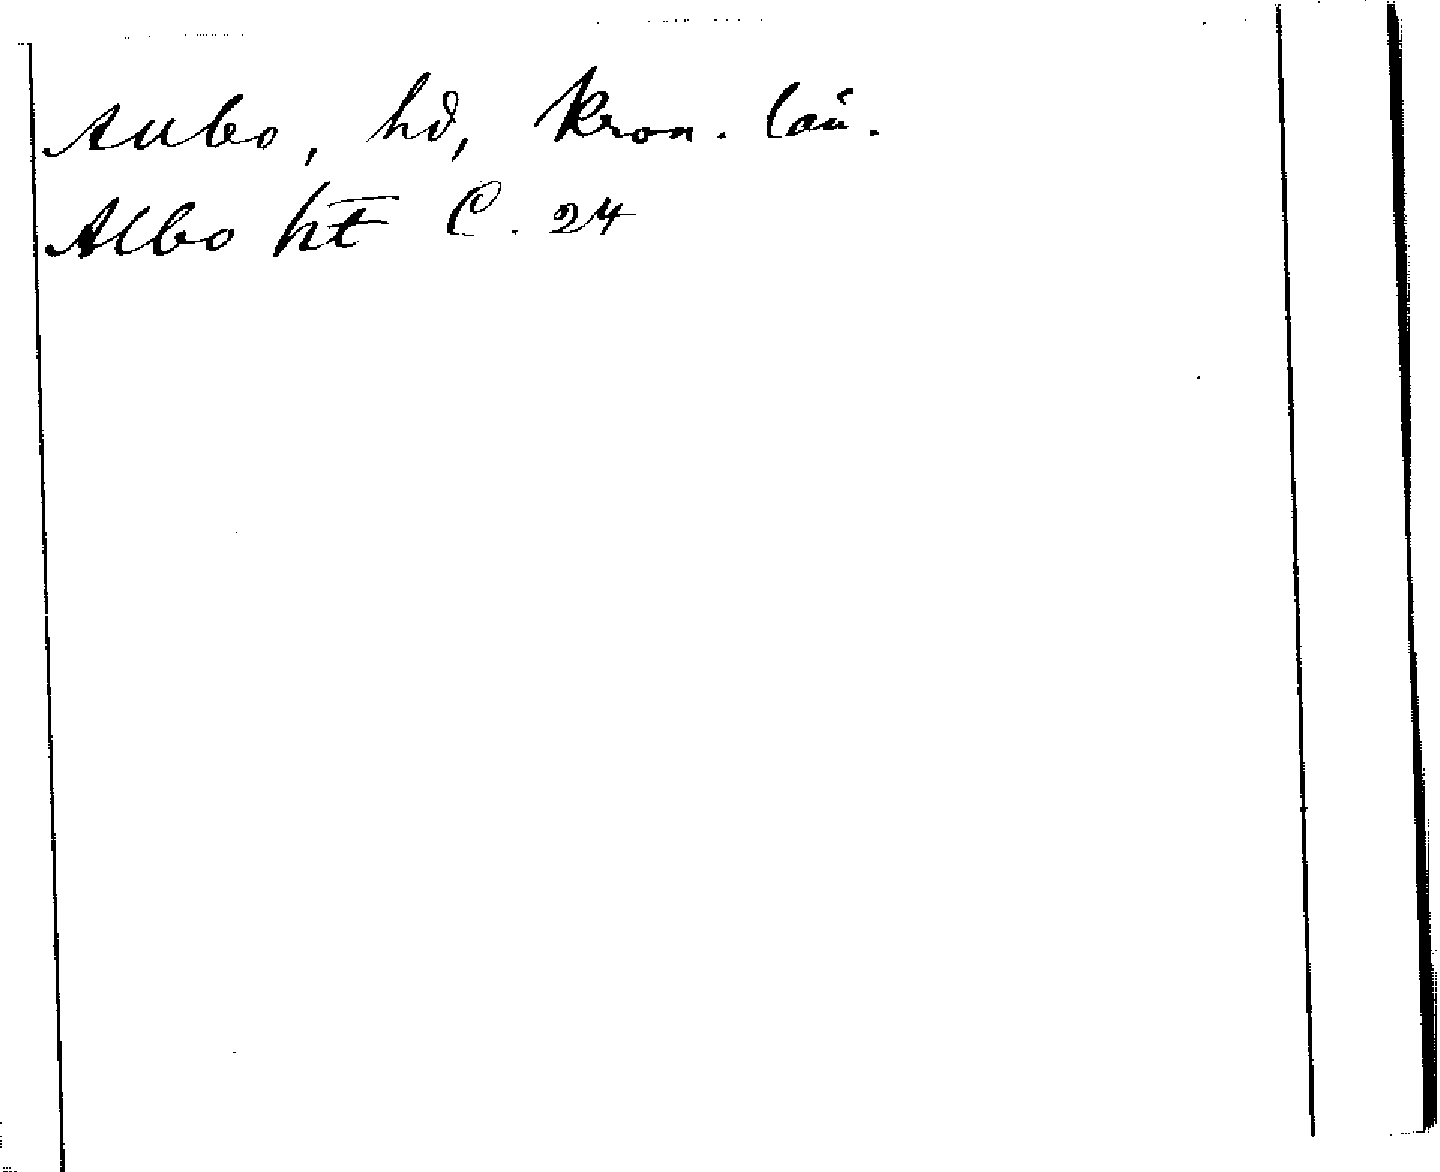 Allbo, hd, Kron. län.
Albo ht C. 24